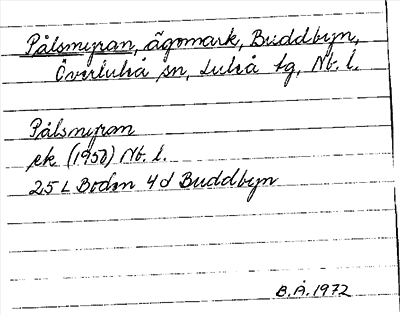 Pålsmyran, ägomark, Buddbyn,
Överluleå sn, Luleå tg, Nb. l.
Pålsmyran
ek. (1950) Nb. l.
25 L Boden 4 d Buddbyn
B.Å. 1972